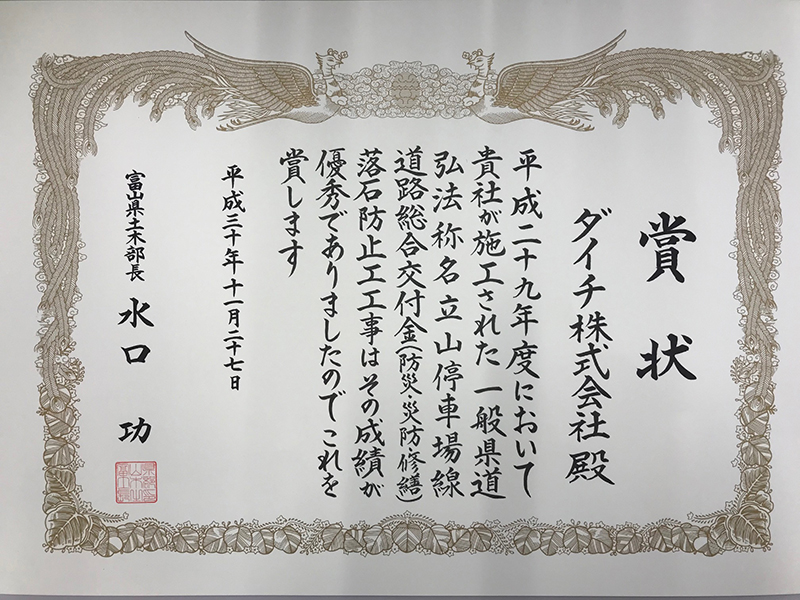 賞状
ダイチ株式会社殿
平成二十九年度において
貴社が施工された一般県道
弘法称名立山停車場線
道路総合交付金(防災・災防修繕)
落石防止工工事はその成績が
優秀でありましたのでこれを
賞します
平成三十年十一月二十七日
富山県土木部長 水口 功